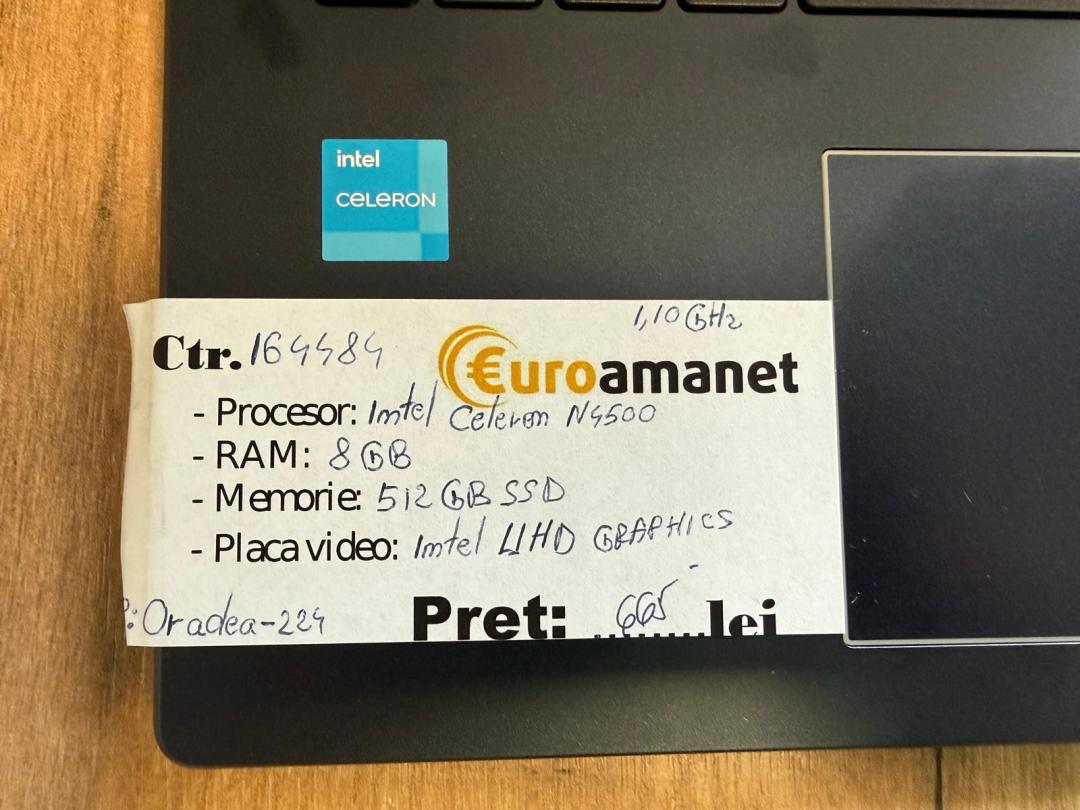 intel
CELERON
1,10 GHz
Ctr. 164484
€uroamanet
- Procesor: Intel Celeron N4500
- RAM: 8 GB
- Memorie: 512 GB SSD
- Placa video: Intel UHD GRAPHICS
: Oradea-224
Pret: 665 lei